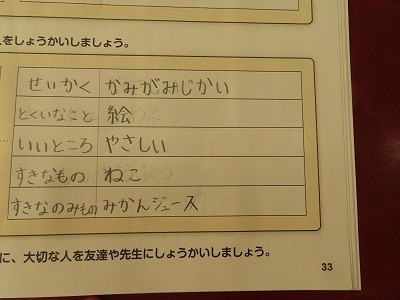 をしょうかいしましょう。
せいかく がみがみじかい
とくいなこと 絵
いいところ やさしい
すきなもの ねこ
すきなのみもの みかんジュース
に、大切な人を友達や先生にしょうかいしましょう。
33